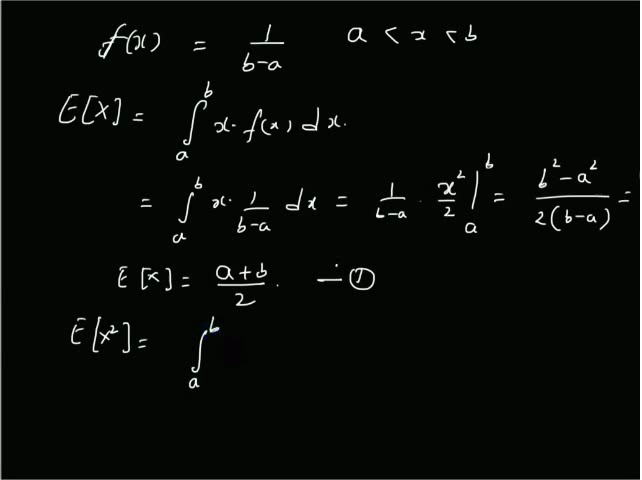 f(x) = 1/(b-a) a < x < b
E[X] = ∫_a^b x · f(x) dx.
= ∫_a^b x · 1/(b-a) dx = 1/(b-a) · x²/2 |_a^b = (b² - a²)/(2(b-a)) =
E[X] = (a+b)/2 . — ①
E[X²] = ∫_a^b